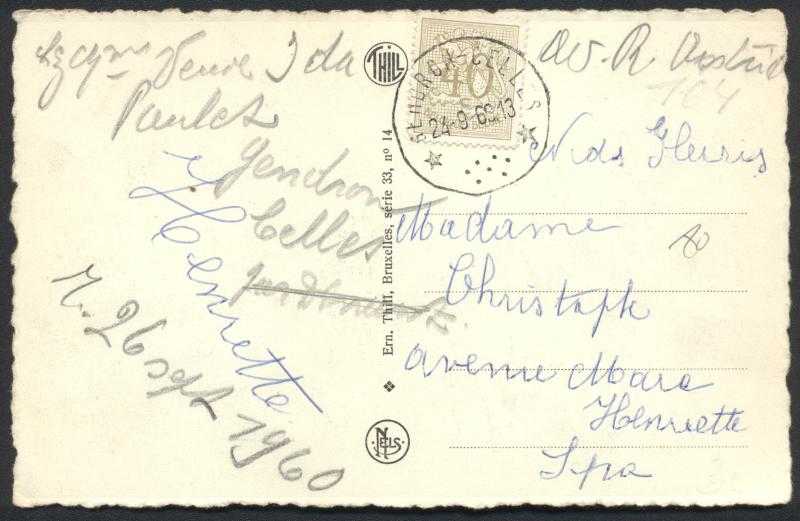 Veuve Ida
Paulet
Gendron
Celles
Henrette
26 sept 1960
THILL
Ern. Thill, Bruxelles, série 33, nº 14
NELS
40
CELLES
24-9-60 13
Av. R.
104
Nids Fleuris
Madame
Christoph
80
avenue Marie
Henriette
Spa